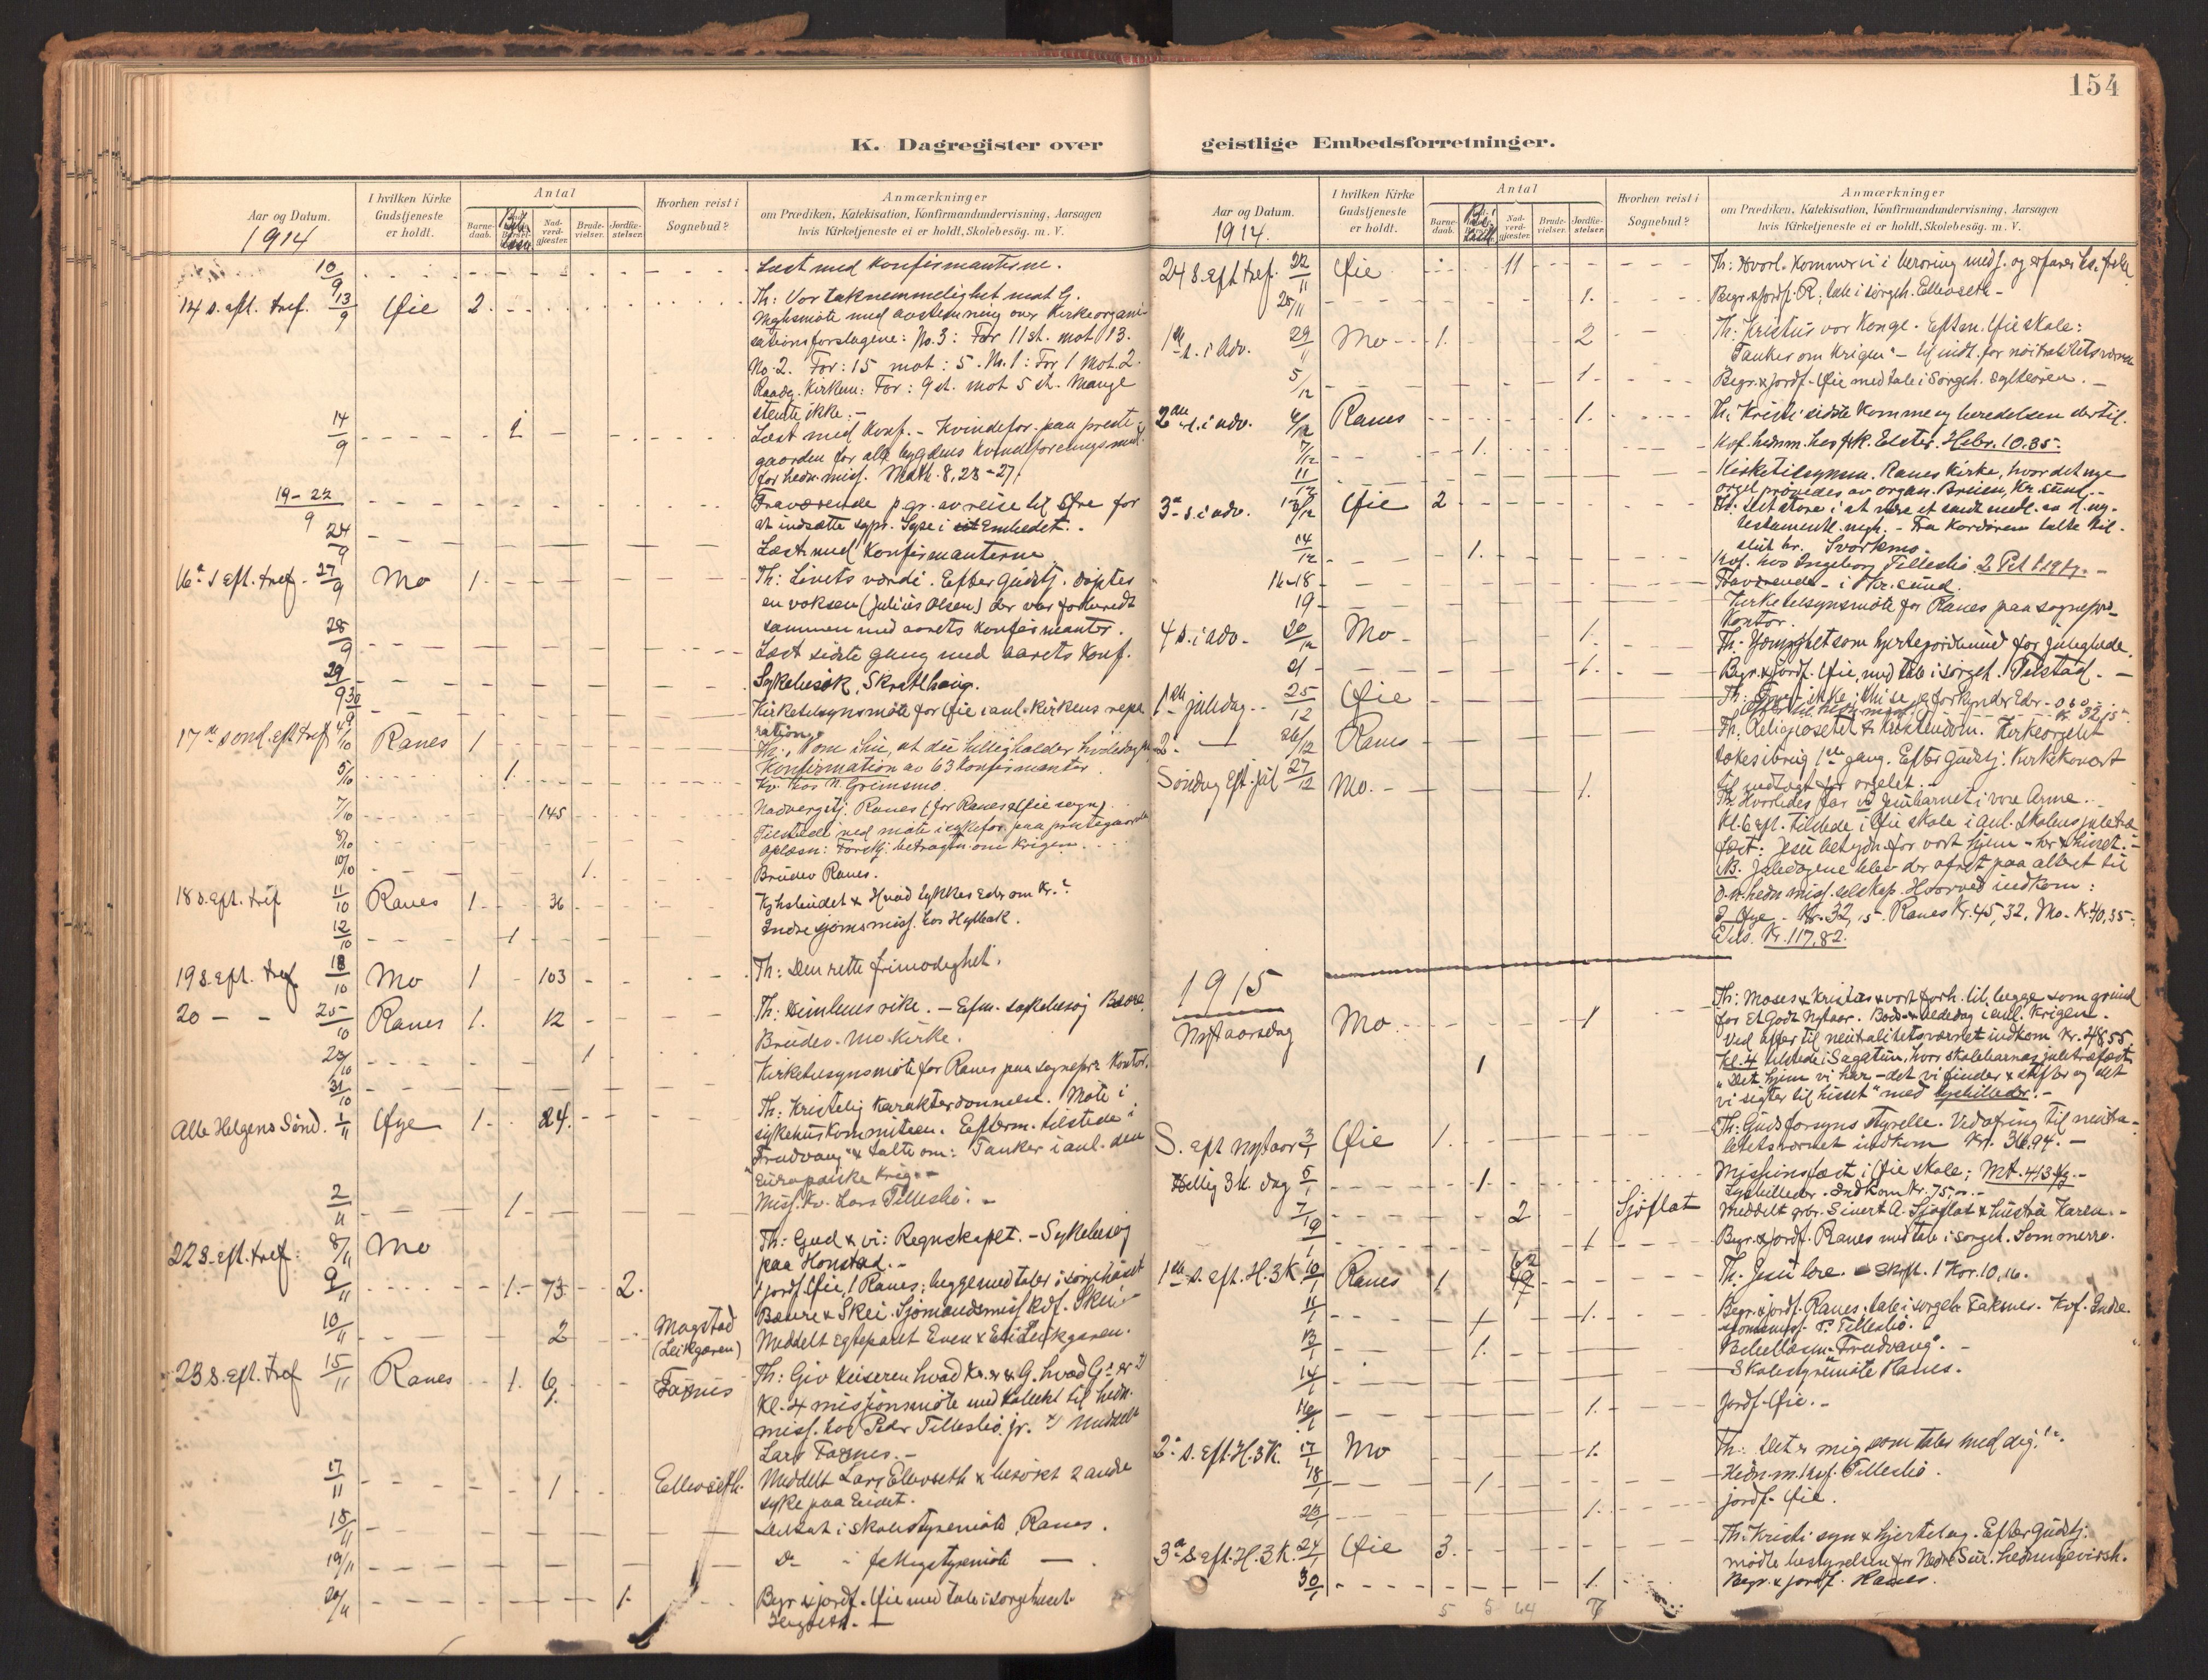 154
K. Dagregister over
Aar og Datum.
1914
I hvilken Kirke
Gudstjeneste
er holdt.
Antal
Barne-
daab.
Nad-
verd-
gjæster.
Brude-
vielser.
Jordfæ-
stelser.
Hvorhen reist i
Sognebud?
Anmærkninger
om Prædiken, Katekisation, Konfirmandundervisning, Aarsagen
hvis Kirketjeneste ei er holdt, Skolebesøg. m. V.
10/9 Læst med konfirmanterne.
14 s. eft. tref. 13/9 Øie 2. Th: Vor taknemmelighet mot G.
Meghsmøte med avstemning over Kirkeorgani-
sationsforslagene: No. 3: For 11 st. mot 13.
No. 2. For: 15 mot: 5. No. 1: For 1 mot. 2.
Raadg. Kirken: For: 9 st. mot 5 st. Mange
stemte ikke. -
14/9 2 Læst med Konf. - Kvindefor. paa preste-
gaarden for alle bygdens kvindeforeningsmedl.
for hedn. miss. Math. 8, 23-27.
19-22/9 Fraværende p. gr. av reise til Øre for
at indsætte sgpr. Sype i Embedet. -
24/9 Læst med Konfirmanterne
16de s eft. tref. 27/9 Mo 1 Th: Livets værdi. Efter Gudstj. døptes
en voksen (Julius Olsen) der var forberedt
sammen med aarets konfirmanter.
28/9 Læst sidste gang med aarets konf.
29/9 Sykebesøk, Skralhaug.
30/9 Kirketilsynsmøte for Øie i anl. kirkens repa
ration.
17de sønd. eft tref 4/10 Ranes 1 Th: Kom ihu, at du helligholder hviledagen
Konfirmation av 63 Konfirmanter.
5/10 1 Kv. hos N. Grimsmo.
7/10 145 Nadvergstj. Ranes (for Ranes & Øie sogn).
8/10 Tilstede ved møte i sykefor. paa prestegaarden
Oplæsn: Forskj. betragtn. om Krigen.
10/10 1. Brudev Ranes.
18 s. eft. tref 11/10 Ranes 1 36 Kjhsbudet & Hvad tykkes Eder om Kr.?
12/10 1 Indre sjømsmiss. hos Hylbak.
19 s. eft. tref 18/10 Mo 1 103 Th: Den rette frimodighet.
20 - - 25/10 Ranes 1. 12 Th: Himlens rike. - Efm. sykebesøg Bære.
1 Brudev. Mo kirke.
31/10 Kirketilsynsmøte for Ranes paa sognepr. Kontor.
Alle Helgens Sønd. 1/11 Øye 1. 24. Th: Kristelig karakterdannelse. Møte i
sykehuskommiteen. Efterm. tilstede i
"Trudvang" & talte om: Tanker i anl. den
Europæiske Krig. -
2/11 1 Miss. Kv. Lars Tillesbø. -
22 s. eft. tref: 8/11 Mo Th: Gud & vi: Regnskapet. - Sykebesøg
paa Honstad. -
9/11 1. 73. 2. 1 jordf. Øie, 1 Ranes; begge med taler i sørgehuset
Bævre & Skei. Sjømandsmiss Kvf. Skei
10/11 2 Magstad
(Leikgaren) Meddelt egteparet Even & Leikgaren.
23 s. eft. tref 15/11 Ranes 1. 6 Faxnes Th: Giv keiseren hvad Kr. er & G. hvad G's er
Kl. 4 missionsmøte med Kollekt til hedn.
miss. hos Peder Tillesbø jr. Meddelt
Lars Faxnes. -
17/11 1 Ellevseth. Meddelt Lars Ellevseth & besøkt 2 andre
syke paa Eidet.
18/11 Deltat i skolestyremøte Ranes.
19/11 Do - -
20/11 1. Begr. & jordf. Øie med tale i sørgehuset
geistlige Embedsforretninger.
Aar og Datum.
1914.
I hvilken Kirke
Gudstjeneste
er holdt.
Antal
Barne-
daab.
Nad-
verd-
gjæster.
Brude-
vielser.
Jordfæ-
stelser.
Hvorhen reist i
Sognebud?
Anmærkninger
om Prædiken, Katekisation, Konfirmandundervisning, Aarsagen
hvis Kirketjeneste ei er holdt, Skolebesøg. m. V.
24 s. eft tref. 22/11 Øie 11 Th: Hvorl. kommer vi i berøring med J. og erfarer
25/11 1. Begr. & jordf. R; tale i sørgeh. Ellevseth -
1ste s. i Adv. 29/11 Mo 1. 2 Th: Kristus vor Konge. Eftm. Øie skole:
"Tanker om Krigen" - til indt. for nøitralitetsværnet
5/12 1. Begr. & jordf. Øie med tale i Sørgeh. Sylteøren. -
2den s. i adv. 6/12 Ranes 1. Th: Kristi sidste Komme og beredelsen dertil.
7/12 1. Kvf. hednm. hos frk. Elster. Hebr. 10.35.
11/12 Kirketilsynsm. Ranes kirke, hvor det nye
orgel prøvedes av organ. Bruun, Kr.sund. -
3de s. i adv. 13/12 Øie 2 Th: Det store i at være et sandt medl. av d. ny-
testamentl. megh. - Fra Kordøren talte til-
slut hr. Svorkmo.
14/12 1. Kvf. hos Ingeborg Tillesbø 2 Pet 1. 19 flg. -
16-18 Fraværende - i Kr.sund.
19 Kirketilsynsmøte for Ranes paa sognepr.
Kontor.
4 s. i adv. 20/12 Mo 1. Th: Ydmyghet som hjertegrundlag for Juleglæde.
21 1. Begr. & Jordf. Øie, med tale i sørgeh. Tilstad. -
1ste juledag 25/12 Øie Th: Frygt ikke; thi se jeg forkynder Eder - o.s.v. -
2. - 26/12 Ranes Th. Religiøsetet & Kristendom. Kirkeorgelet
tokes i brug 1ste gang. Efter Gudstj. Kirkekonsert
til indtægt for orgelet. -
Søndag eft. jul 27/12 Mo. 1. Th. Hvorledes faar vi Jesubarnet i vore Arme. -
Kl. 6 eft. tilstede i Øie skole i anl. skolens juletræ
fest. Jesu betydn. for vort hjem - her & hisset. -
NB. Juledagene blev der ofret paa alteret til
d. n. hedn. miss. selskap. Hvorved indkom:
I Øye - Kr. 32,15. Ranes Kr. 45,32. Mo. Kr. 40,35.
Tils. Kr. 117,82.
1915
Nytaarsdag Mo 1 Th: Moses & Kristus & vort forh. til begge som grund
for Et Godt Nytaar. Bods- & bededag i anl. krigen.
Ved offer til neutralitetsværnet indkom Kr. 48,55.
1 Kl. 4 tilstede i Sagatun, hvor skolebarnas juletræfest
"Det hjem vi har - det vi finder & stifter og det
vi sigter til hisset" med lysbilleder. -
S. eft nytaar 3/1 Øie 1. Th: Guds forsyns styrelse. Ved ofring til neutra-
litetsværnet indkom Kr. 36.94. -
Hellig 3 K. dag 6/1 1. Missionsfest i Øie skole; Mt. 4,13 flg. -
Lysbilleder. Indkom Kr. 75,00. -
7/1 2 Sjøflat Meddelt gbr. Sivert A. Sjøflat & hustru Karen. -
9/1 1 Begr. & jordf. Ranes med tale i sørgeh. Sommerro.
1ste s. eft. H. 3 K. 10/1 Ranes 1 62 Th: Jesu lære. - Skrft. 1 Kor. 10,16.
11/1 1 1. Begr. & jordf. Ranes. tale i sørgeh. Faksnes. Kvf. Indre.
sjømsmiss. P. Tillesbø.
13/1 1. Bibellæsn. "Trudvang". -
14/1 Skolestyremøte Ranes.
16/1 1. Jordf. Øie. -
2den s. eft. H. 3 K. 17/1 Mo 1. Th: Det er mig som taler med dig! -
18/1 1 Hedn. m. kvf. Tillesbø.
23/1 1. jordf. Øie.
3die s. eft. H. 3 K. 24/1 Øie 3. Th: Kristi syn & hjertelag. Efter Gudstj.
mødte bestyrelsen for Nedre Sur. hedningevirks.
30/1 1. Begr. & jordf. Ranes.
5 5 64 7